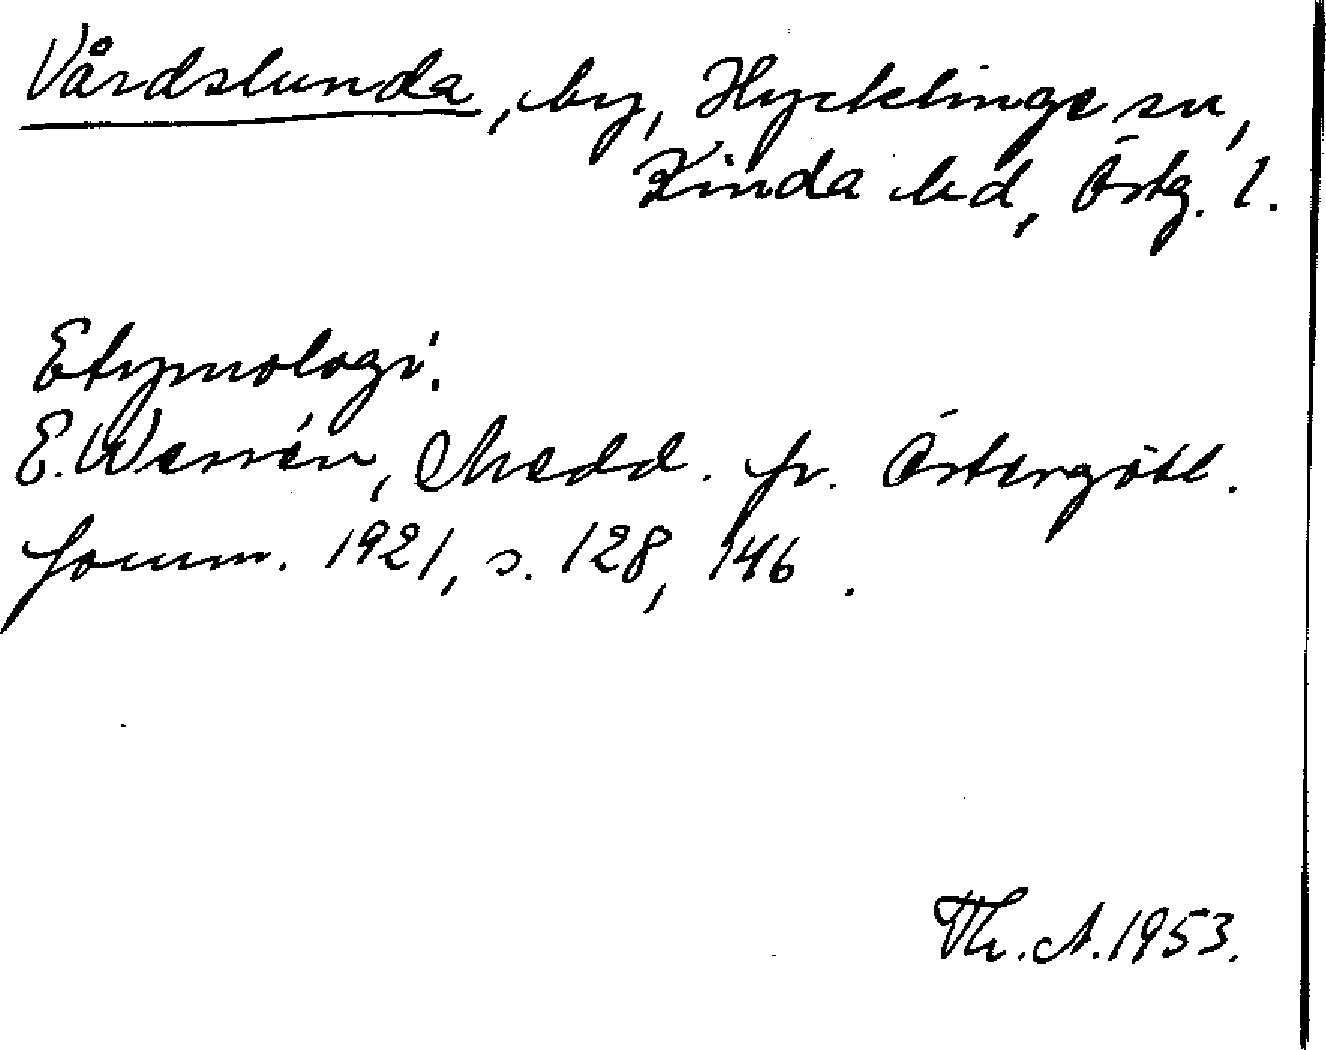 Vårdslunda, by, Hycklinge sn,
Kinda hd, Östg. l.
Etymologi:
E. Wessén, Medd. fr. Östergötl.
fornm. 1921, s. 128, 146.
Th. A. 1953.